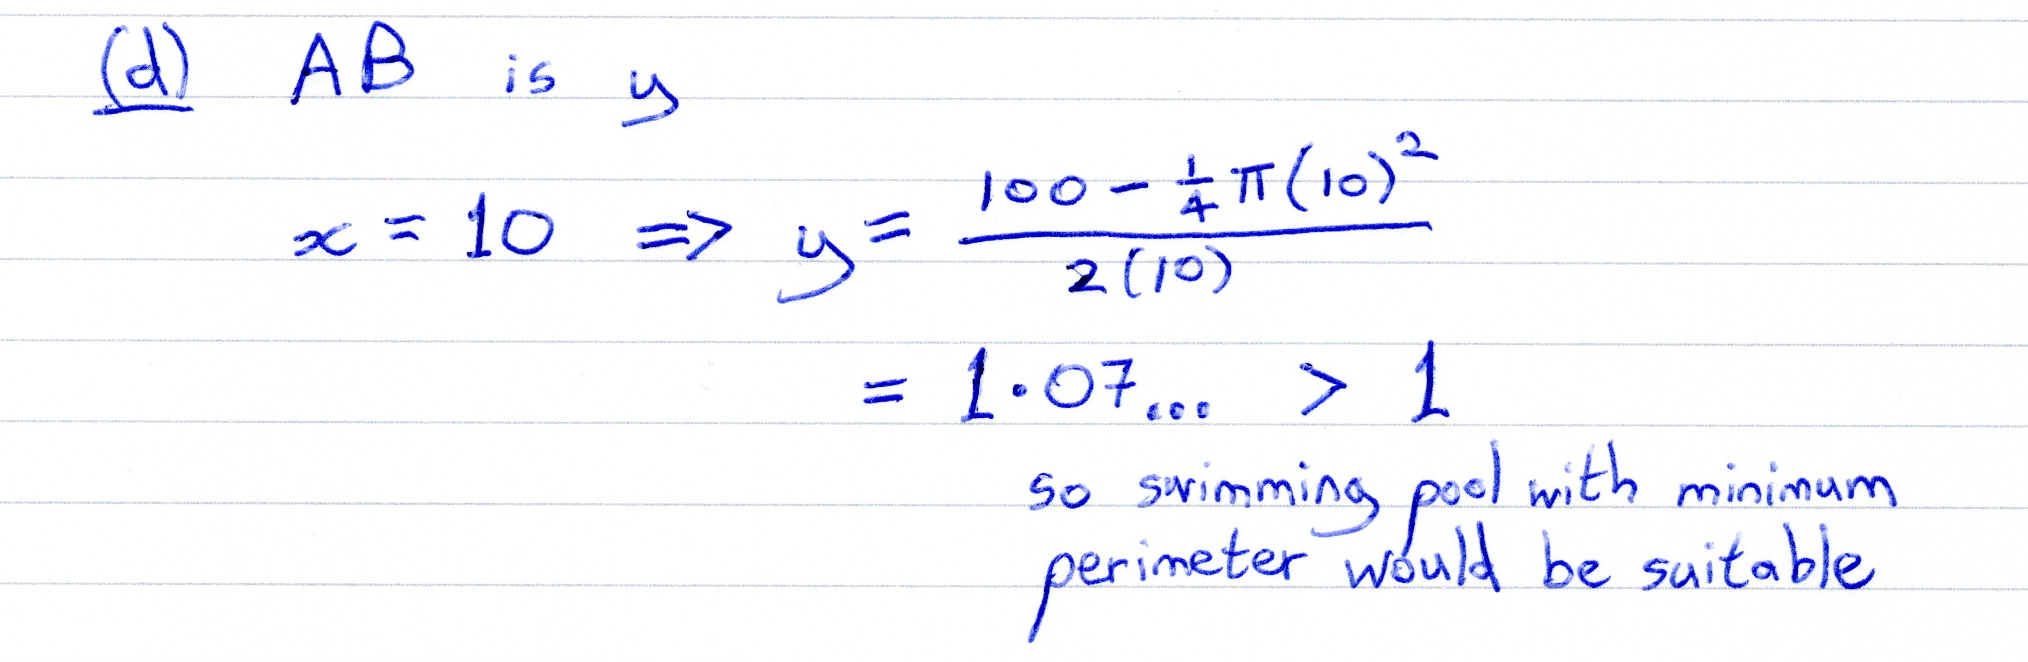 (d) AB is y
x = 10 => y = (100 - 1/4 π(10)²) / 2(10)
= 1.07... > 1
so swimming pool with minimum
perimeter would be suitable